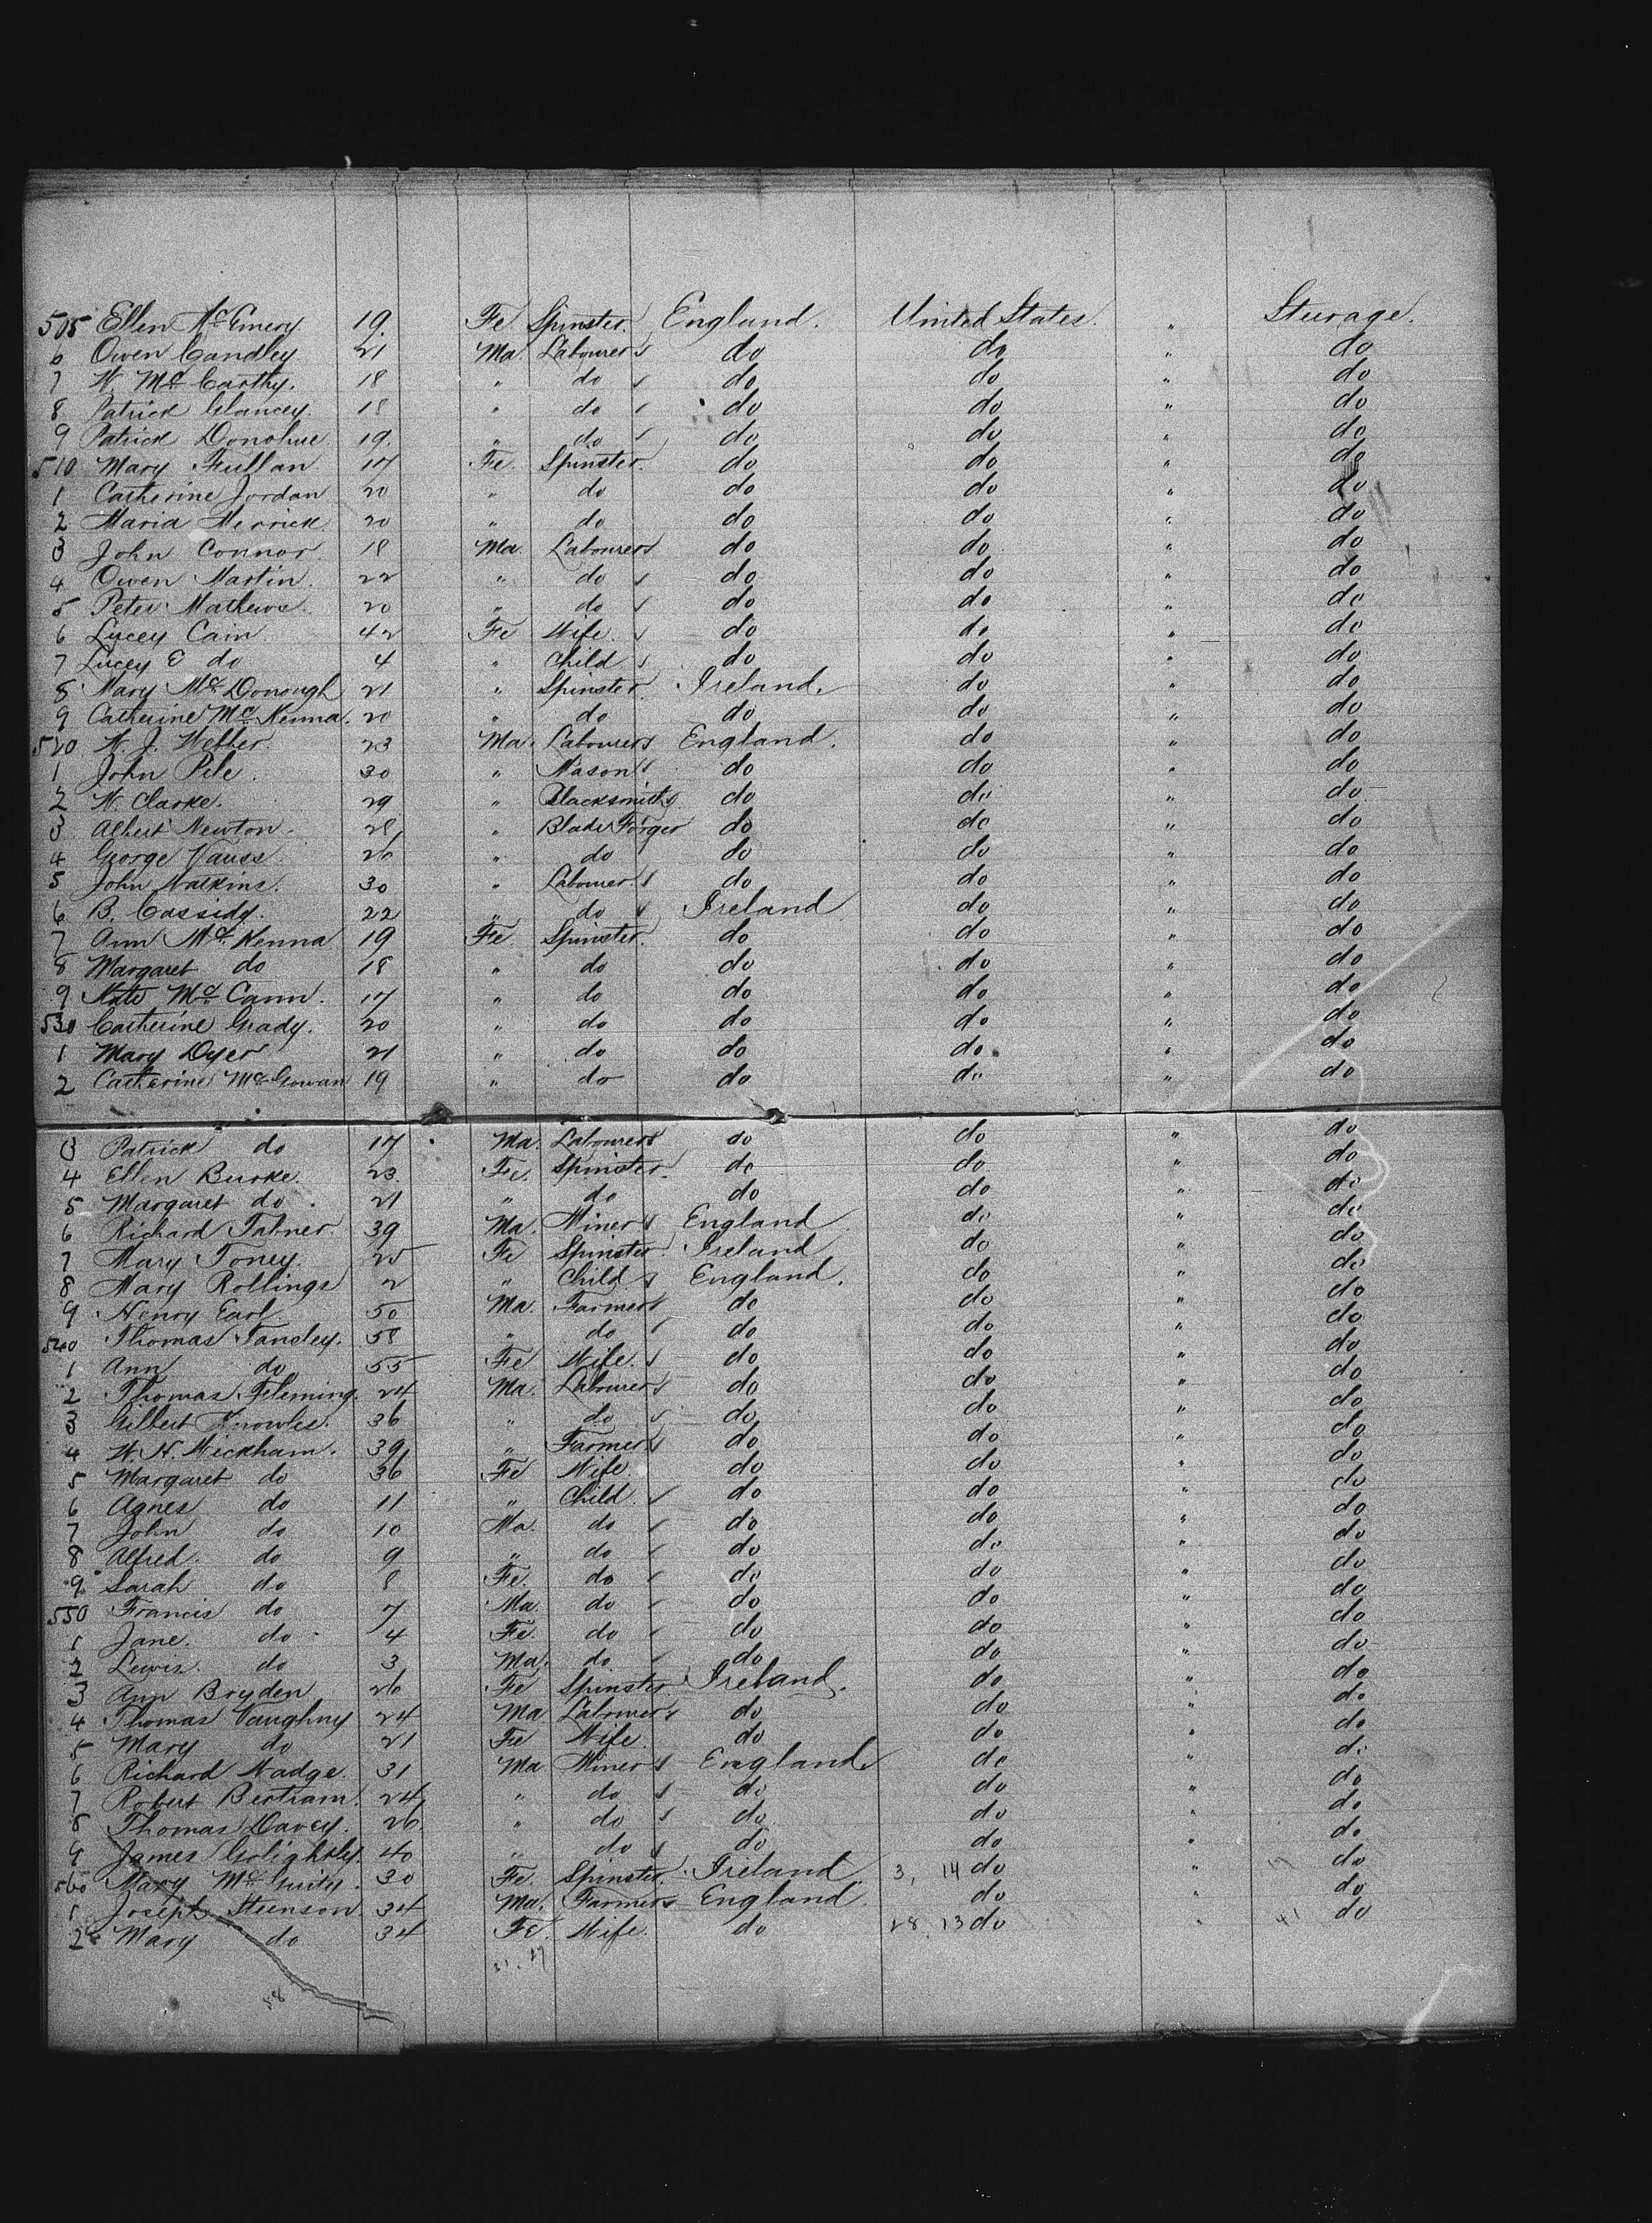 505 Ellen McEmery 19. Fe Spinster. England. United States. " Sturage.
6 Owen Candley 21 Ma. Labourers do do " do
7 W. Mc Carthy. 18 " do do do " do
8 Patrick Glancey. 18 " do do do " do
9 Patrick Donohue 19. " do do do " do
510 Mary Fullan 17 Fe. Spinster. do do " do
1 Catherine Jordan 20 " do do do " do
2 Maria Merrick 20 " do do do " do
3 John Connor 18 Ma. Labourers do do " do
4 Owen Martin. 22 " do do do " do
5 Peter Mathews 20 " do do do " do
6 Lucey Cain 42 Fe Wife. do do " do
7 Lucey E do 4 " Child do do " do
8 Mary Mc Donough 21 " Spinster. Ireland. do " do
9 Catherine Mc Kenna. 20 " do do do " do
520 W. J. Webber. 23 Ma. Labourers England. do " do
1 John Pile. 30 " Mason do do " do
2 W. Clarke. 29 " Blacksmiths do do " do
3 Albert Newton. 28 " Blade Forger do do " do
4 George Vauss 26 " do do do " do
5 John Watkins. 30 " Labourer do do " do
6 B. Cassidy. 22 " do Ireland do " do
7 Ann Mc Kenna 19 Fe Spinster. do do " do
8 Margaret do 18 " do do do " do
9 Kate Mc Cann. 17 " do do do " do
530 Catherine Grady. 20 " do do do " do
1 Mary Dyer 21 " do do do " do
2 Catherine McGowan 19 " do do do " do
3 Patrick do 17 Ma. Labourers do do " do
4 Ellen Burke. 23. Fe. Spinster. do do " do
5 Margaret do 21 " do do do " do
6 Richard Tabner. 39 Ma. Miner England do " do
7 Mary Toney. 25 Fe Spinster. Ireland do " do
8 Mary Rollings 2 " Child England. do " do
9 Henry Earl. 50 Ma. Farmers do do " do
540 Thomas Tansley. 58 " do do do " do
1 Ann do 55 Fe Wife. do do " do
2 Thomas Fleming. 24 Ma. Labourers do do " do
3 Gilbert Knowles. 36 " do do do " do
4 W. H. Wickham. 39 " Farmers do do " do
5 Margaret do 36 Fe Wife. do do " do
6 Agnes do 11 " Child. do do " do
7 John do 10 Ma. do do do " do
8 Alfred. do 9 " do do do " do
9 Sarah do 8 Fe. do do do " do
550 Francis do 7 Ma. do do do " do
1 Jane. do 4 Fe. do do do " do
2 Lewis. do 3 Ma. do do do " do
3 Ann Bryden 26 Fe Spinster. Ireland. do " do
4 Thomas Vaughny 24 Ma Labourers do do " do
5 Mary do 21 Fe Wife. do do " do
6 Richard Madge. 31 Ma Miner England. do " do
7 Robert Bertram. 24 " do do do " do
8 Thomas Davey. 26. " do do do " do
9 James Golightly. 40 " do do do " do
560 Mary Mc Guity. 30 Fe. Spinster. Ireland 3, 14 do " do
1 Joseph Steenson. 34 Ma. Farmers England. do " do
2 Mary do 34 Fe. Wife. do 28, 13 do " 41 do
31. 27
58